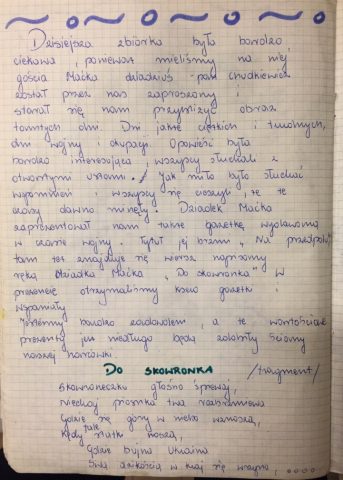 Dzisiejsza zbiórka była bardzo
ciekawa, ponieważ mieliśmy na niej
gościa Maćka dziadziuś - pan Chudkiewicz
został przez nas zaproszony i
starał się nam przybliżyć obraz
tamtych dni. Dni jakże ciężkich i trudnych,
dni wojny i okupacji. Opowieść była
bardzo interesująca, wszyscy słuchali z
otwartymi ustami. Jak miło było słuchać
wspomnień i wszyscy się cieszyli, że te
czasy dawno minęły. Dziadek Maćka
zaprezentował nam także gazetkę wydawaną
w czasie wojny. Tytuł jej brzmi „Na przedpolu"
tam też znajduje się wiersz napisany
ręką dziadka Maćka „Do skowronka" W
prezencie otrzymaliśmy ksero gazetki i
wypaliły
Jesteśmy bardzo zadowoleni, a te wartościowe
prezenty już niedługo będą zdobiły ściany
naszej harcówki.
DO SKOWRONKA /fragment/
Skowroneczku głośno śpiewaj,
Niechaj piosnka twa rozbrzmiewa
Gdzie się góry w niebo wznoszą,
Kędy fale statki noszą,
Gdzie bujna Ukraina
Swą dzikością w kraj się wrzyna, ....